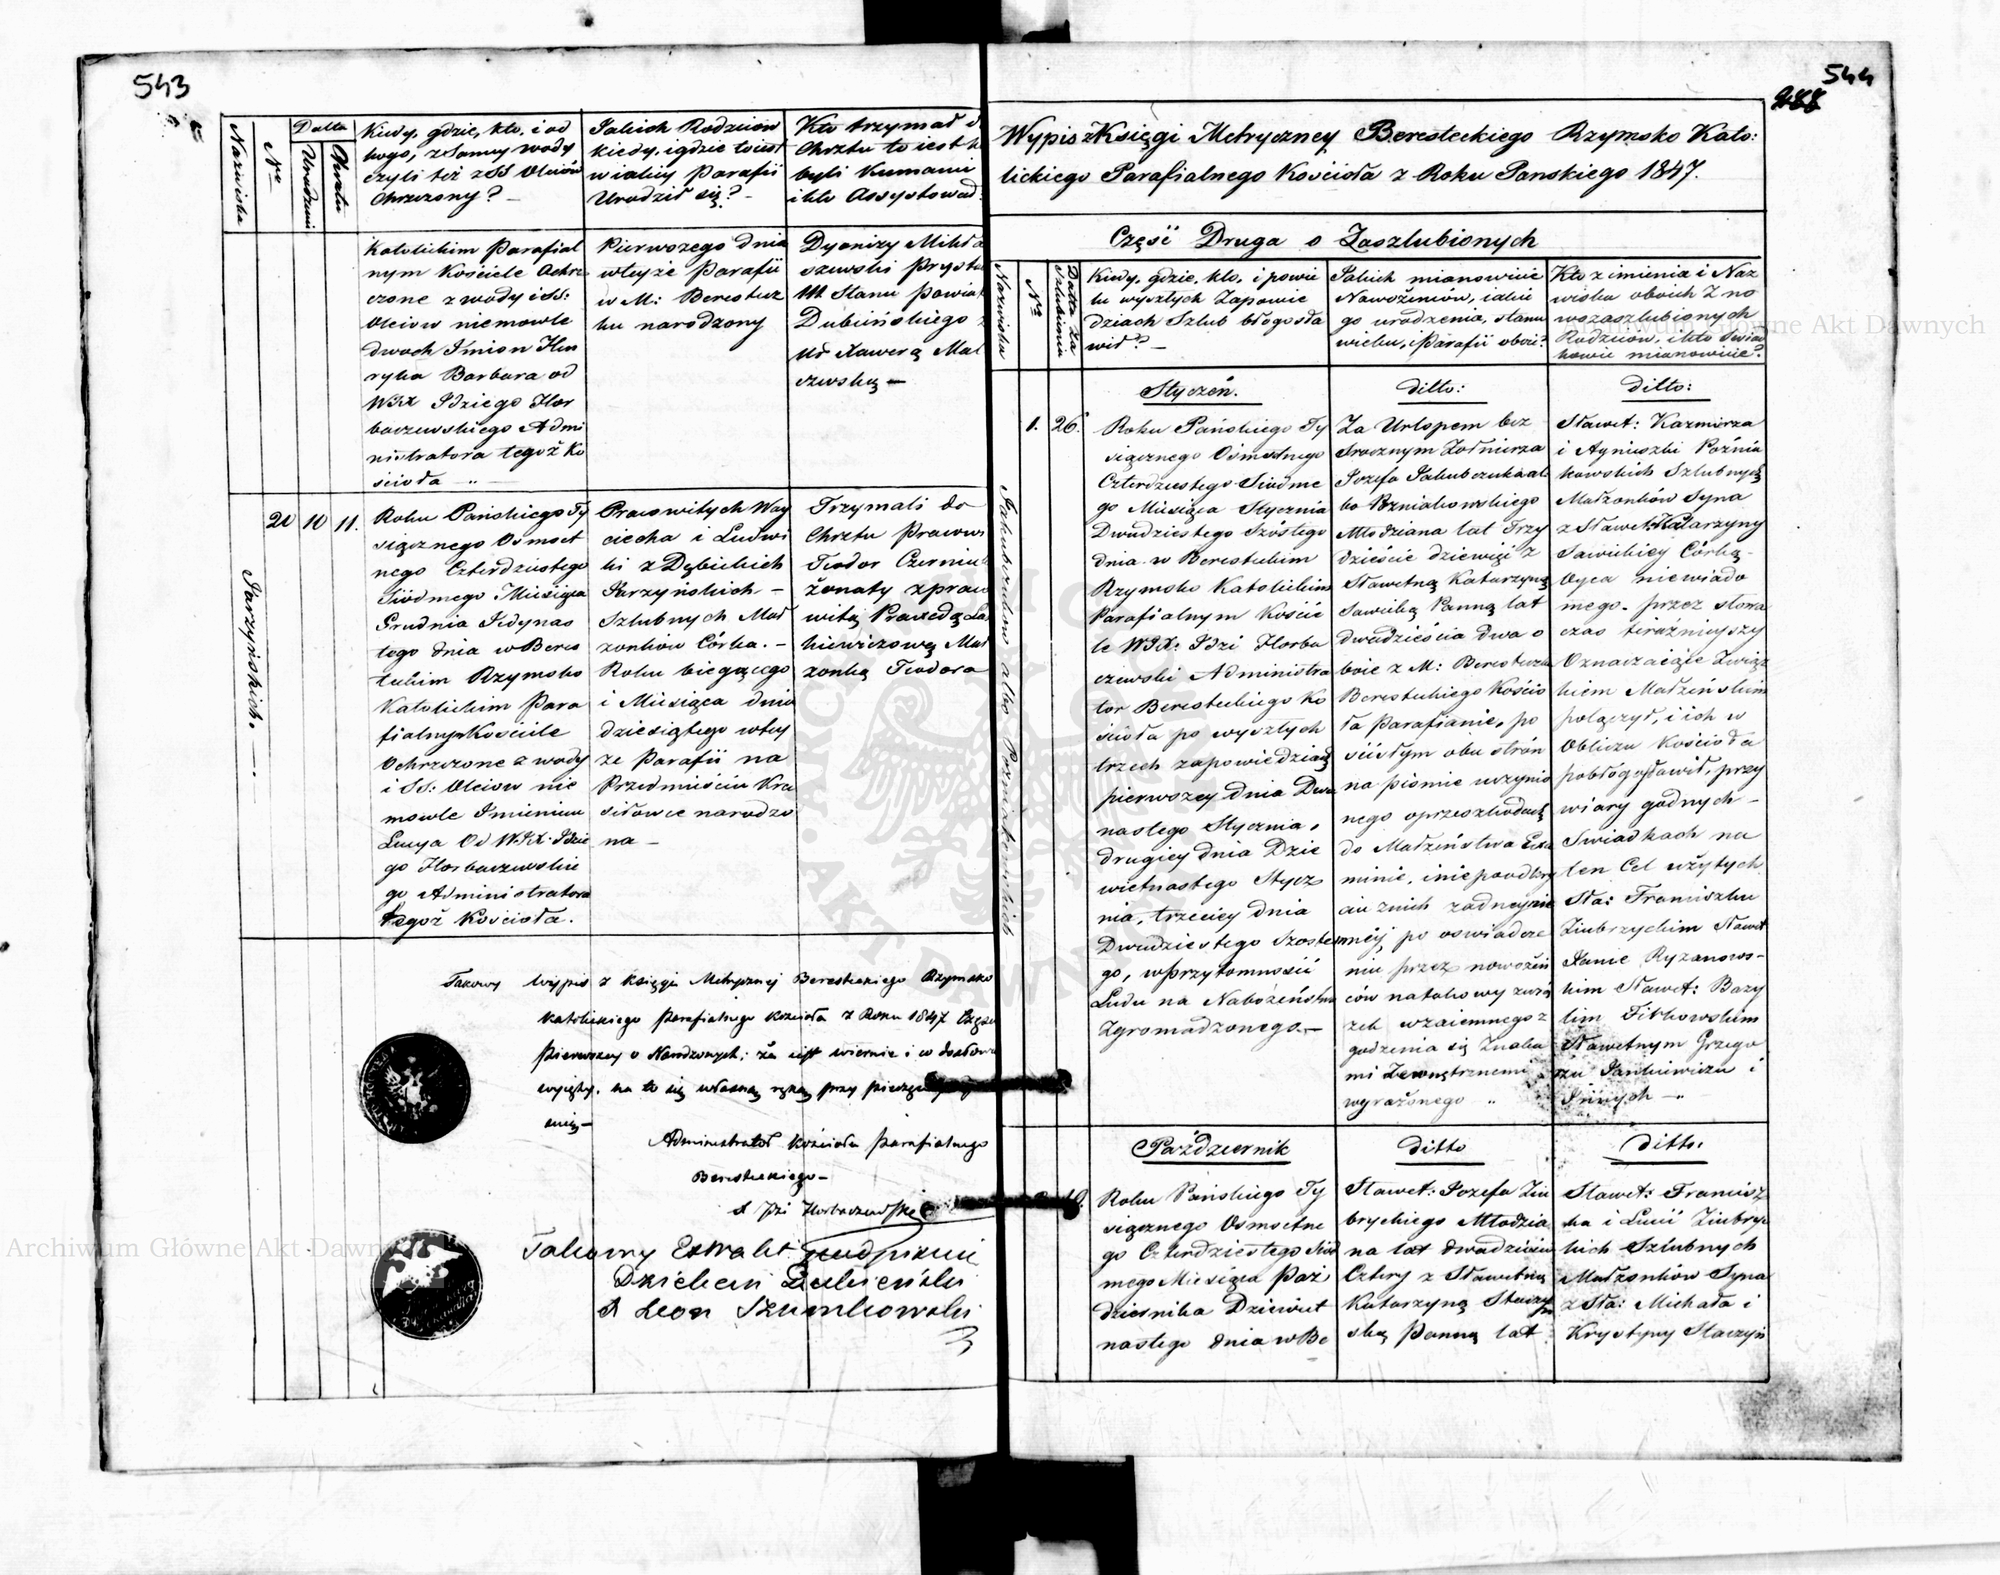 543
Nazwiska
Nro
Datta
Urodzenia
Chrztu
Kiedy, gdzie, kto, i od
kogo, z Samey wody
czyli też z SS Oleiów
Chrzczony? –
Jakich Rodziców
kiedy, i gdzie to iest
w iakiey Parafii
Urodził się? –
Kto trzymał d
Chrztu to iest k
byli Kumami
i kto Assystował
Katolickim Parafial
nym Kościele Ochrz
czone z wody i SS:
Oleiow niemowle
dwoch Imion Hen
ryka Barbara od
WJX Idziego Hor
baczewskiego Admi
nistratora tegoż Ko
ścioła –
Pierwszego dnia
w teyże Parafii
w M: Berestecz
ku narodzony
Dyonizy Mikła
szewski Prysta
III Stanu Powia
Dubieńskiego z
Ur Xawerą Mal
czewską –
Jarzyńskich. –
20 10 11.
Roku Pańskiego Ty
siącznego Osmset
nego Czterdziestego
Siódmego Miesiąca
Grudnia Jedynas
tego dnia w Beres
teckim Rzymsko
Katolickim Para
fialnym Kościele
Ochrzczone z wody
i SS: Oleiow nie
mowle Imieniem
Lucya Od WJX Idzie
go Horbaczewskie
go Administratora
tegoż Kościoła.
Pracowitych Woy
ciecha i Ludwi
ki z Dębickich
Jarzyńskich –
Szlubnych Mał
zonków Córka. –
Roku biegącego
i Miesiąca dnia
dziesiątego w tey
ze Parafii na
Przedmieściu Kra
siłowce narodzo
na –
Trzymali do
Chrztu Pracowi
Teodor Czerniu
żonaty z praco
witą Prawedą La
kiewiczową Mał
zonką Teodora
Takowy Wypis z Księgi Metrycznej Beresteckiego Rzymsko
Katolickiego Parafialnego Kościoła z Roku 1847 Części
Pierwszey o Narodzonych; że iest wiernie i co do słowa
wyięty, na to się własną ręką przy pieczęci
Administrator Kościoła Parafialnego
Beresteckiego –
X Idzi Horbaczewski
Takowy Extrakt
Dziekan Dubieński
X Leon Szumkowski
544
288
Wypis z Księgi Metryczney Beresteckiego Rzymsko Kato:
lickiego Parafialnego Kościoła z Roku Panskiego 1847.
Część Druga o Zaszlubionych
Nazwiska
Nro
Datta Za
Szlubienia
Kiedy, gdzie, kto, i powie
lu wyszłych Zapowie
dziach Szlub błogosła
wił? –
Jakich mianowicie
Nowożeńców, iakie
go urodzenia, stanu
wieku, Parafii oboie?
Kto z imienia i Naz
wiska oboich z no
wozaszlubionych
Rodziców, i kto Swiad
kowie mianowicie?
Styczeń.
ditto:
ditto:
Jakubczuków albo Pozniakowskich
1. 26.
Roku Pańskiego Ty
siącznego Osmsetnego
Czterdziestego Siódme
go Miesiąca Stycznia
Dwudziestego Szóstego
dnia w Beresteckim
Rzymsko Katolickim
Parafialnym Koście
le WJX: Idzi Horba
czewski Administra
tor Beresteckiego Ko
ścioła po wyszłych
trzech zapowiedziach
pierwszey dnia Dwu
nastego Stycznia,
drugiey dnia Dzie
wietnastego Stycz
nia, trzeciey dnia
Dwudziestego Szoste
go, w przytomności
Ludu na Nabożeństwo
Zgromadzonego. –
Za Urlopem bez
srocznym Żołnierza
Jozefa Jakubczuka al
bo Pozniakowskiego
Młodziana lat Trzy
dzieście dziewięć z
Sławetną Katarzyną
Sawicką Panną lat
dwadzieścia dwa o
boie z M: Beresteczka
Beresteckiego Kościo
ła Parafianie, po
ścisłym obu strón
na piśmie uczynio
nego o przeszkodach
do Małżeństwa Exa
minie, i nie powzię
ciu z nich zadney nie
mniéy po oswiadcze
niu przez nowożeń
ców natakowy zwią
zek wzaiemnego z
godzenia się Znaka
mi Zewnętrznemi
wyrażonego „
Sławet: Kazmierza
i Agnieszki Poźnia
kowskich Szlubnych
Małżonków Syna
z Sławet: Katarzyny
Sawickiey Córką –
Oyca niewiado
mego – przez słowa
czas teraźnieyszy
Oznaczaiące Związ
kiem Małżeńskim
połączył, i ich w
Obliczu Kościoła
pobłogosławił, przy
wiary godnych –
Swiadkach na
ten Cel użytych
Sła: Franciszku
Ziubrzyckim Sławet
Janie Ryzanows-
kim Sławet: Bazy
lim Fitkowskim
Sławetnym Grzego
rzu Jankiewiczu i
Innych –
Październik
ditto
ditto:
Roku Pańskiego Ty
siącznego Osmsetne
go Czterdziestego Siód
mego Miesiąca Paź
dziernika Dziewięt
nastego dnia w Be
Sławet: Jozefa Ziu
bryckiego Młodzia
na lat dwadzieścia
Cztery z Sławetną
Katarzyną Staczyń
ską Panną lat
Sławet: Francisz
ka i Lucii Ziubryc
kich Szlubnych
Małżonków Syna
z Sła: Michała i
Krystyny Staczyń
Archiwum Główne Akt Dawnych
Archiwum Główne Akt Dawnych